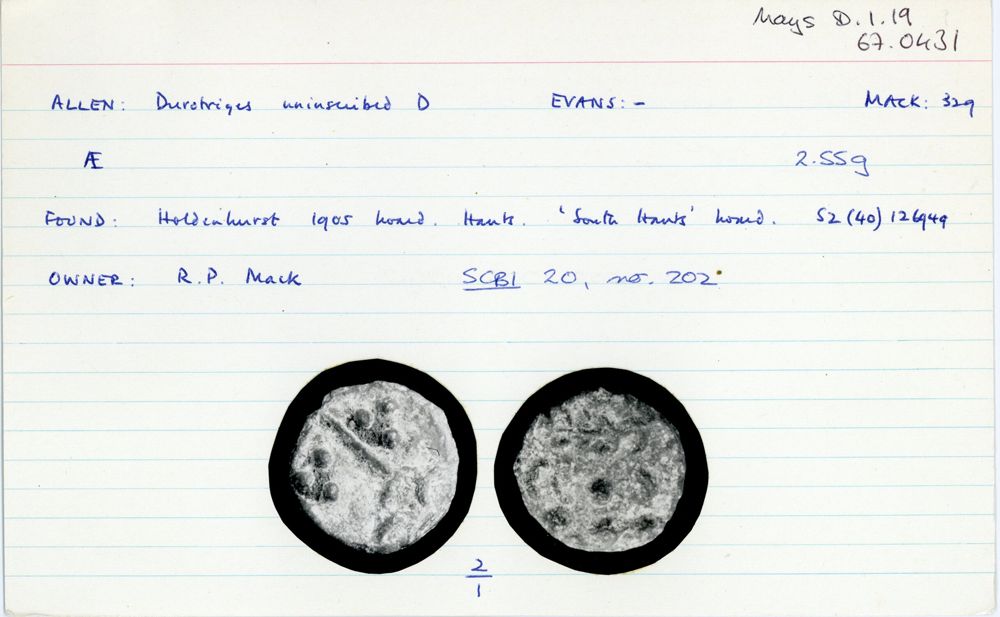 Mays D.1.19
67.0431
ALLEN: Durotriges uninscribed D EVANS: - MACK: 329
Æ 2.55g
FOUND: Holdenhurst 1905 hoard. Hants. 'South Hants' hoard. SZ (40) 126949
OWNER: R.P. Mack SCBI 20, no. 202
2
1